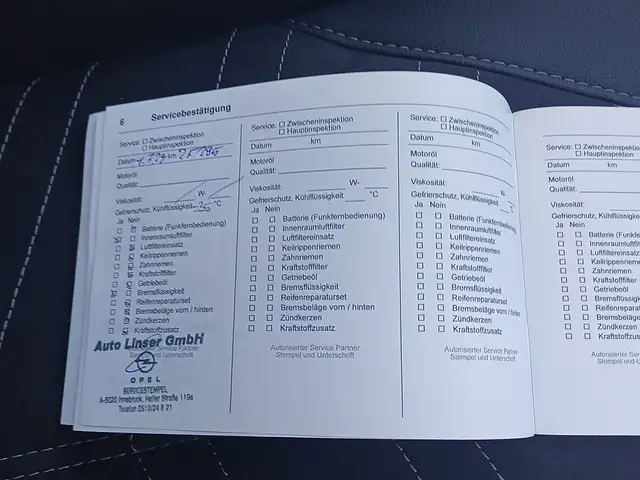 6 Servicebestätigung
Service: ☐ Zwischeninspektion
☐ Hauptinspektion
Datum km
Motoröl
Qualität:
Viskosität: W-
Gefrierschutz, Kühlflüssigkeit -25 °C
Ja Nein
Batterie (Funkfernbedienung)
Innenraumluftfilter
Luftfiltereinsatz
Keilrippenriemen
Zahnriemen
Kraftstofffilter
Getriebeöl
Bremsflüssigkeit
Reifenreparaturset
Bremsbeläge vorn / hinten
Zündkerzen
Kraftstoffzusatz
Auto Linser GmbH
Service Partner
und Unterschrift
OPEL
SERVICESTEMPEL
A-6020 Innsbruck, Haller Straße 119a
Telefon 0512/24 8 21
Service: ☐ Zwischeninspektion
☐ Hauptinspektion
Datum km
Motoröl
Qualität:
Viskosität: W-
Gefrierschutz, Kühlflüssigkeit °C
Ja Nein
☐ ☐ Batterie (Funkfernbedienung)
☐ ☐ Innenraumluftfilter
☐ ☐ Luftfiltereinsatz
☐ ☐ Keilrippenriemen
☐ ☐ Zahnriemen
☐ ☐ Kraftstofffilter
☐ ☐ Getriebeöl
☐ ☐ Bremsflüssigkeit
☐ ☐ Reifenreparaturset
☐ ☐ Bremsbeläge vorn / hinten
☐ ☐ Zündkerzen
☐ ☐ Kraftstoffzusatz
Autorisierter Service Partner
Stempel und Unterschrift
Service: ☐ Zwischeninspektion
☐ Hauptinspektion
Datum km
Motoröl
Qualität:
Viskosität: W-
Gefrierschutz, Kühlflüssigkeit °C
Ja Nein
☐ ☐ Batterie (Funkfernbedienung)
☐ ☐ Innenraumluftfilter
☐ ☐ Luftfiltereinsatz
☐ ☐ Keilrippenriemen
☐ ☐ Zahnriemen
☐ ☐ Kraftstofffilter
☐ ☐ Getriebeöl
☐ ☐ Bremsflüssigkeit
☐ ☐ Reifenreparaturset
☐ ☐ Bremsbeläge vorn / hinten
☐ ☐ Zündkerzen
☐ ☐ Kraftstoffzusatz
Autorisierter Service Partner
Stempel und Unterschrift
Service: ☐ Zwischeninspektion
☐ Hauptinspektion
Datum km
Motoröl
Qualität:
Viskosität:
Gefrierschutz, Kühlflüssigke
Ja Nein
☐ ☐ Batterie (Funkfe
☐ ☐ Innenraumluftfi
☐ ☐ Luftfiltereinsatz
☐ ☐ Keilrippenrieme
☐ ☐ Zahnriemen
☐ ☐ Kraftstofffilter
☐ ☐ Getriebeöl
☐ ☐ Bremsflüssigk
☐ ☐ Reifenreparat
☐ ☐ Bremsbeläge
☐ ☐ Zündkerzen
☐ ☐ Kraftstoffzus
Autorisierter Serv
Stempel und U